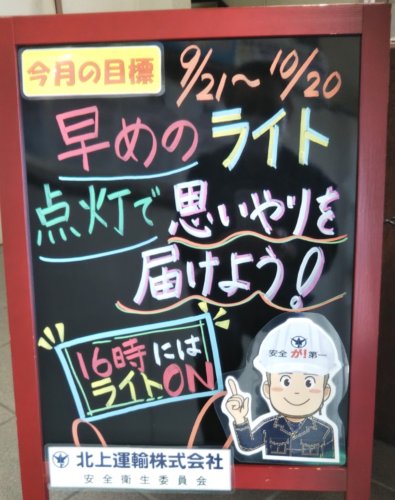 今月の目標
9/21～10/20
早めのライト
点灯で思いやりを
届けよう!
16時には
ライトON
安全が!第一
北上運輸株式会社
安全衛生委員会